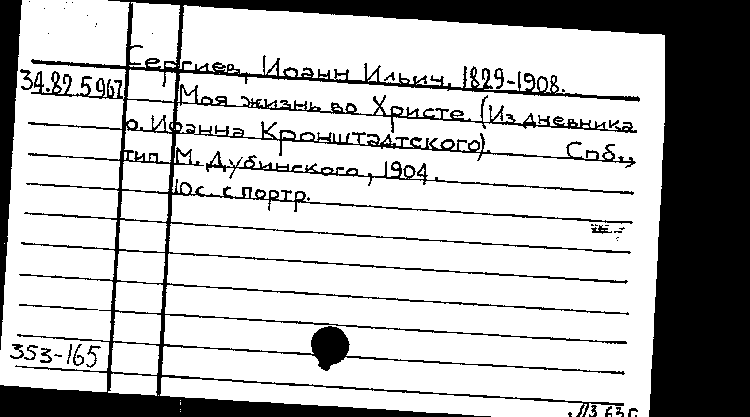 Сергиев, Иоанн Ильич, 1829-1908.
34.82.5967
Моя жизнь во Христе. (Из дневника
о. Иоанна Кронштадтского). Спб.,
тип. М. Дубинского, 1904.
10 с. с портр.
353-165